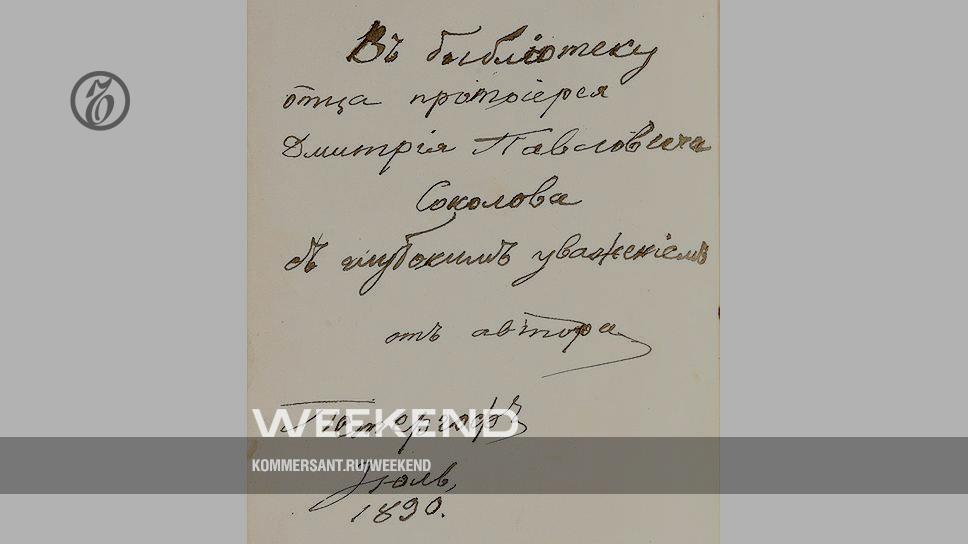 Въ библіотеку
отца протоіерея
Дмитрія Павловича
Соколова
съ глубокимъ уваженіемъ
отъ автора
Петергофъ
WEEKEND
KOMMERSANT.RU/WEEKEND
Іюль,
1890.